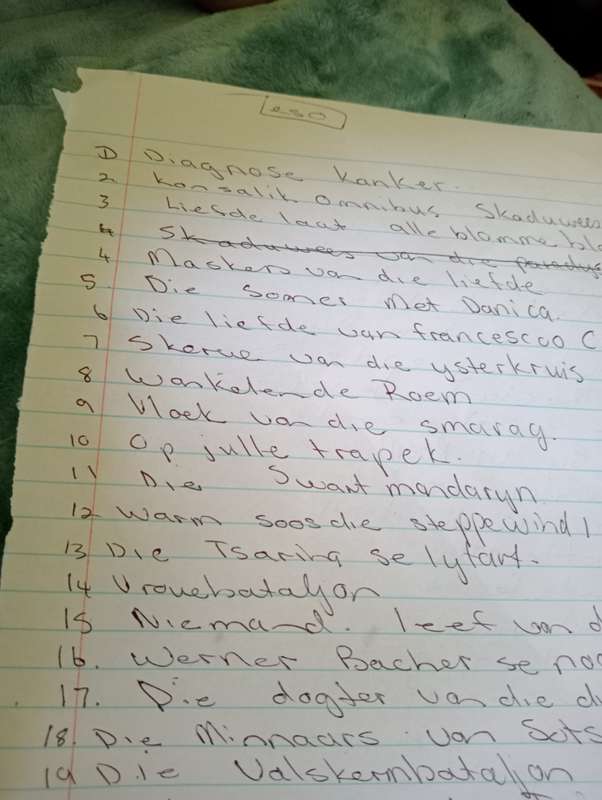 eso
1) Diagnose kanker.
2 Konsalik omnibus Skaduwees
3 Liefde laat alle blomme blo
4 Skaduwees van die paradys
4 Maskers van die liefde
5. Die Somer Met Danica.
6 Die liefde van francesco C
7 Skerwe van die ysterkruis
8 Wankelende Roem
9 Vloek van die smarag.
10 Op julle trapek.
11 Die Swart mandaryn
12 Warm soos die steppewind
13 Die Tsarina se lyfart.
14 Vrouebataljon
15 Niemand. leef van d
16. Werner Bacher se
17. Die dogter van die
18. Die Minnaars van Sots
19 Die Valskermbataljon